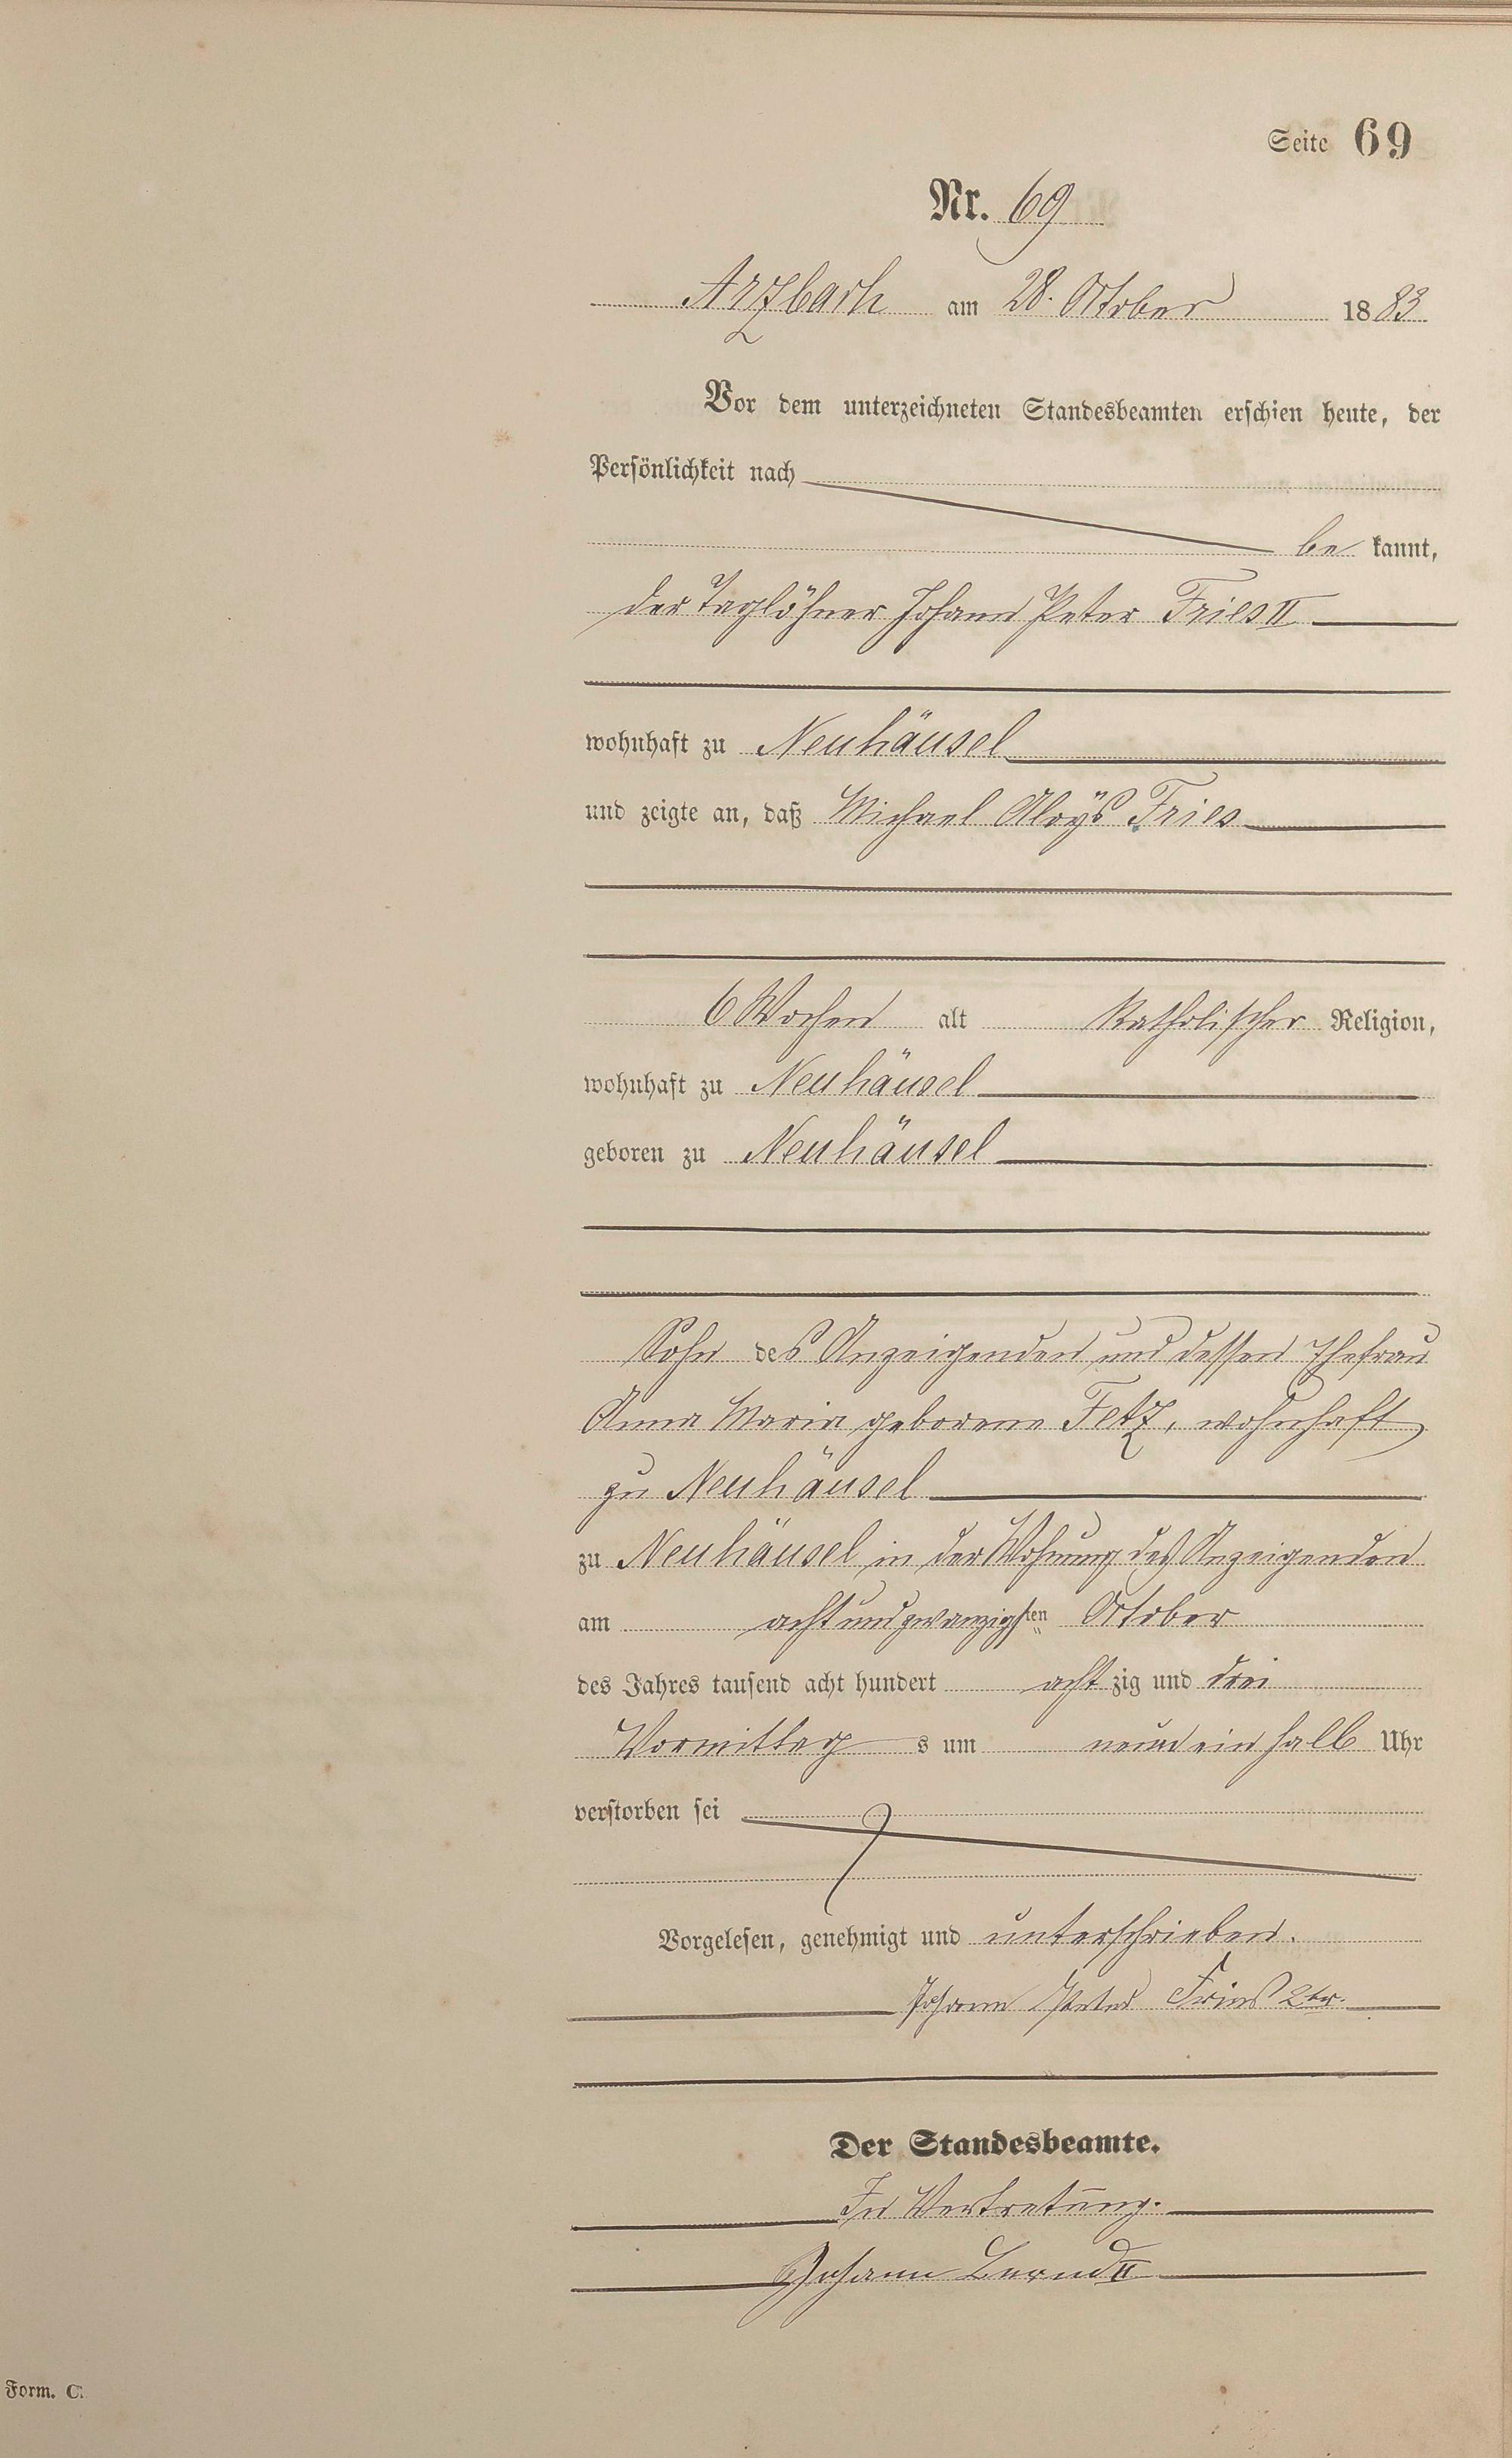 Seite 69
Nr. 69
Arzbach am 28. October 1883
Vor dem unterzeichneten Standesbeamten erschien heute, der
Persönlichkeit nach
be kannt,
der Taglöhner Johann Peter Fries II
wohnhaft zu Neuhäusel
und zeigte an, daß Michael Aloÿs Fries
6 Wochen alt katholischer Religion,
wohnhaft zu Neuhäusel
geboren zu Neuhäusel
Sohn des Anzeigenden und dessen Ehefrau
Anna Maria geborene Fetz, wohnhaft
zu Neuhäusel
zu Neuhäusel in der Wohnung des Anzeigenden
am achtundzwanzigsten October
des Jahres tausend acht hundert acht zig und drei
Vormittag s um neun ein halb Uhr
verstorben sei
Vorgelesen, genehmigt und unterschrieben.
Johann Peter Fries 2ter.
Der Standesbeamte.
In Vertretung.
Johann Bernd II
Form. C.